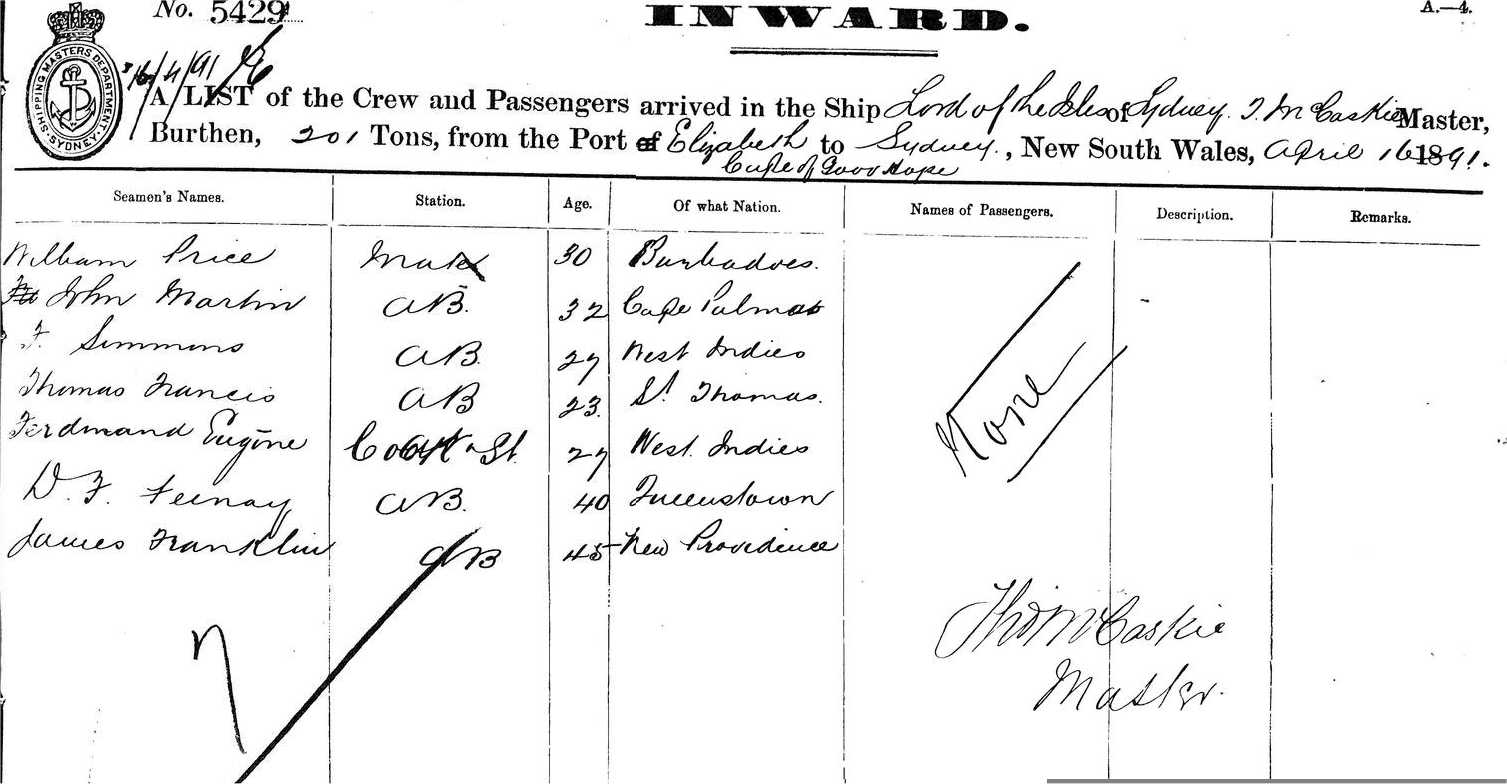 No. 5429
INWARD.
A.—4.
SHIPPING MASTERS DEPARTMENT SYDNEY
16/4/91
A LIST of the Crew and Passengers arrived in the Ship Lord of the Isles of Sydney. T. McCaskie Master,
Burthen, 201 Tons, from the Port of Elizabeth to Sydney., New South Wales, April 16 1891.
Cape of Good Hope
Seamen's Names. Station. Age. Of what Nation. Names of Passengers. Description. Remarks.
William Price Mate 30 Barbadoes.
John Martin AB. 32 Cape Palmas
F. Simmons AB. 27 West Indies
Thomas Francis AB 23. St Thomas.
Ferdinand Eugene Cook & St. 27 West Indies
None
D. F. Feenay AB. 40 Queenstown
James Franklin AB 45 New Providence
7
Tho McCaskie
Master.